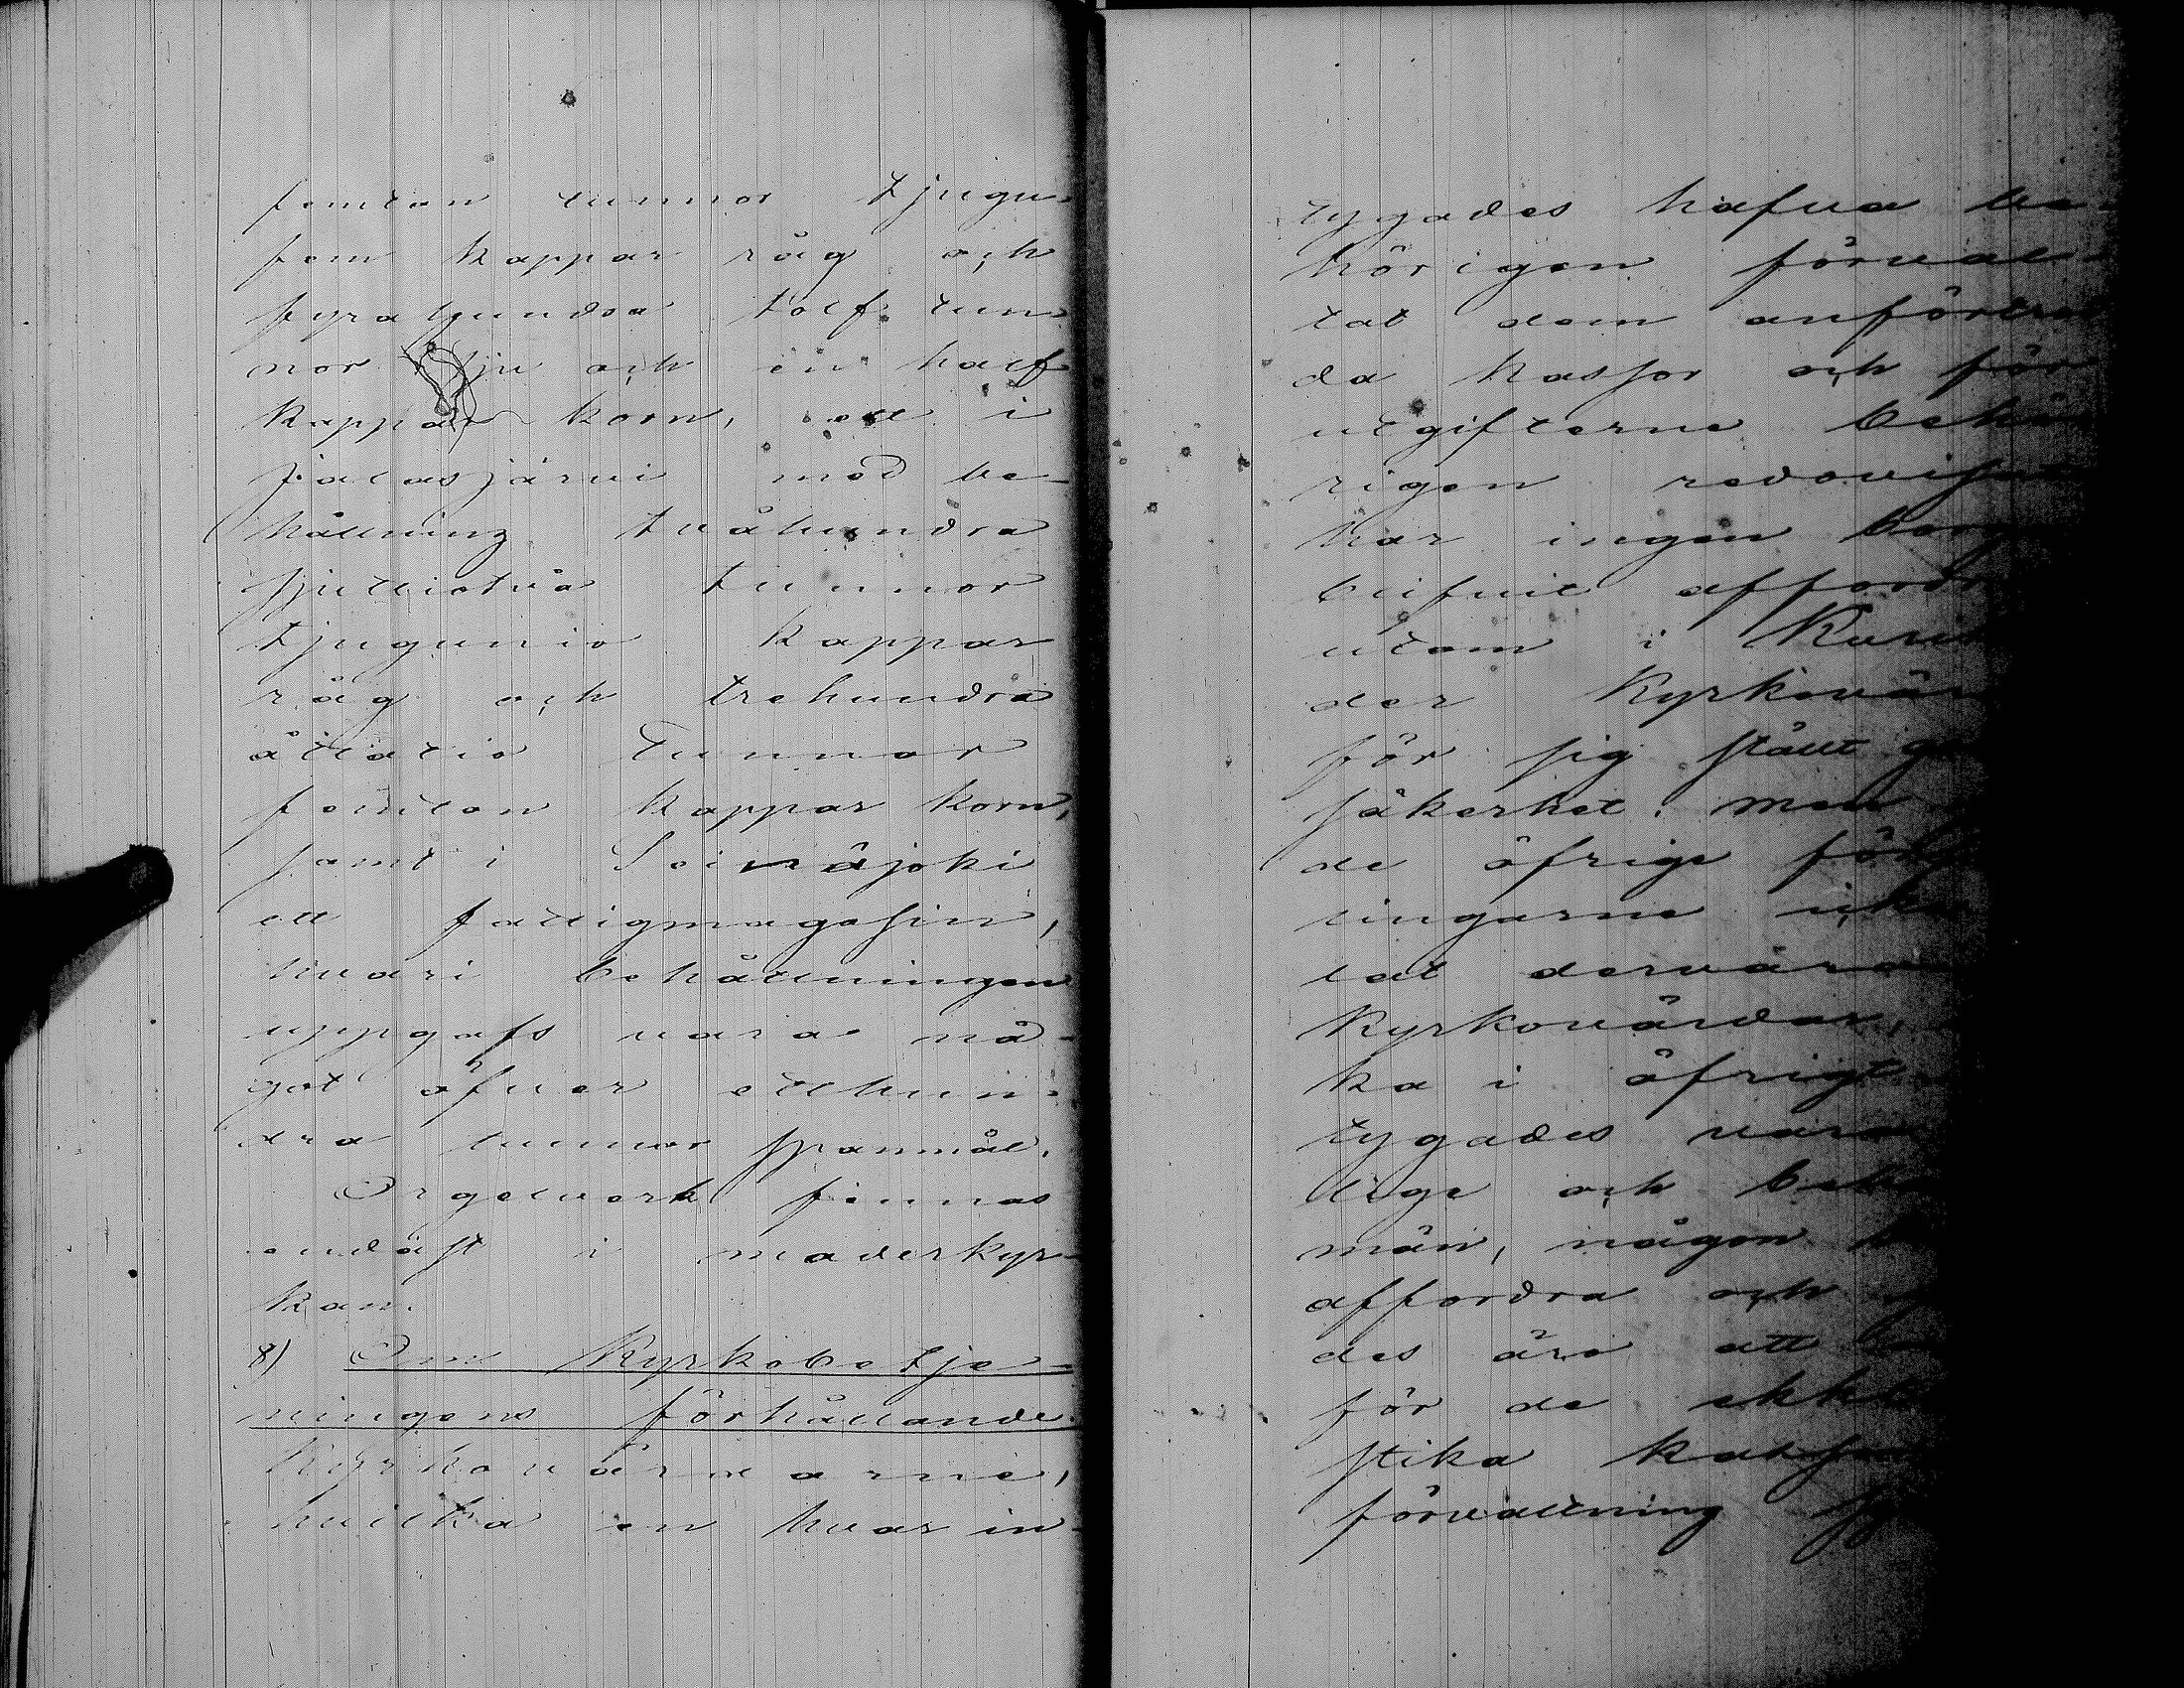 femtan tunnor tjugu-
fem kappar råg och
fyrahundra tolf tun-
nor sju och en half
kappar korn, ett i
Jalasjärvi med be-
hållning tvåhundra
sjuttiotvå tunnor
tjugunio kappar
råg och trehundra
åttatio tunnor
femton kappar korn,
samt i Seinäjoki
ett fattigmagasin,
hvari behållningen
uppgafs vara nå-
got öfver etthun-
dra tunnor spanmål.
Orgelverk finnas
endast i moderkyr-
kan.
8) Om Kyrkobetje-
ningens förhållande.
Kyrkovärdarne,
hvilka en hvar in-
tygades hafva be-
hörigen förval-
tat dem anförtro
da kassor och för
utgifterne behö
rigen redovisa
har ingen borg
blifvit affordr
utom i
der Kyrkovär
för sig ställt
säkerhet. men
de öfrige för
lingarne icke
tat dervara
Kyrkovärdar,
ka i öfrigt
tygades vara
lige och
män, någon
affordra och
des äro att
för de ekkl
stika kassor
förvaltning